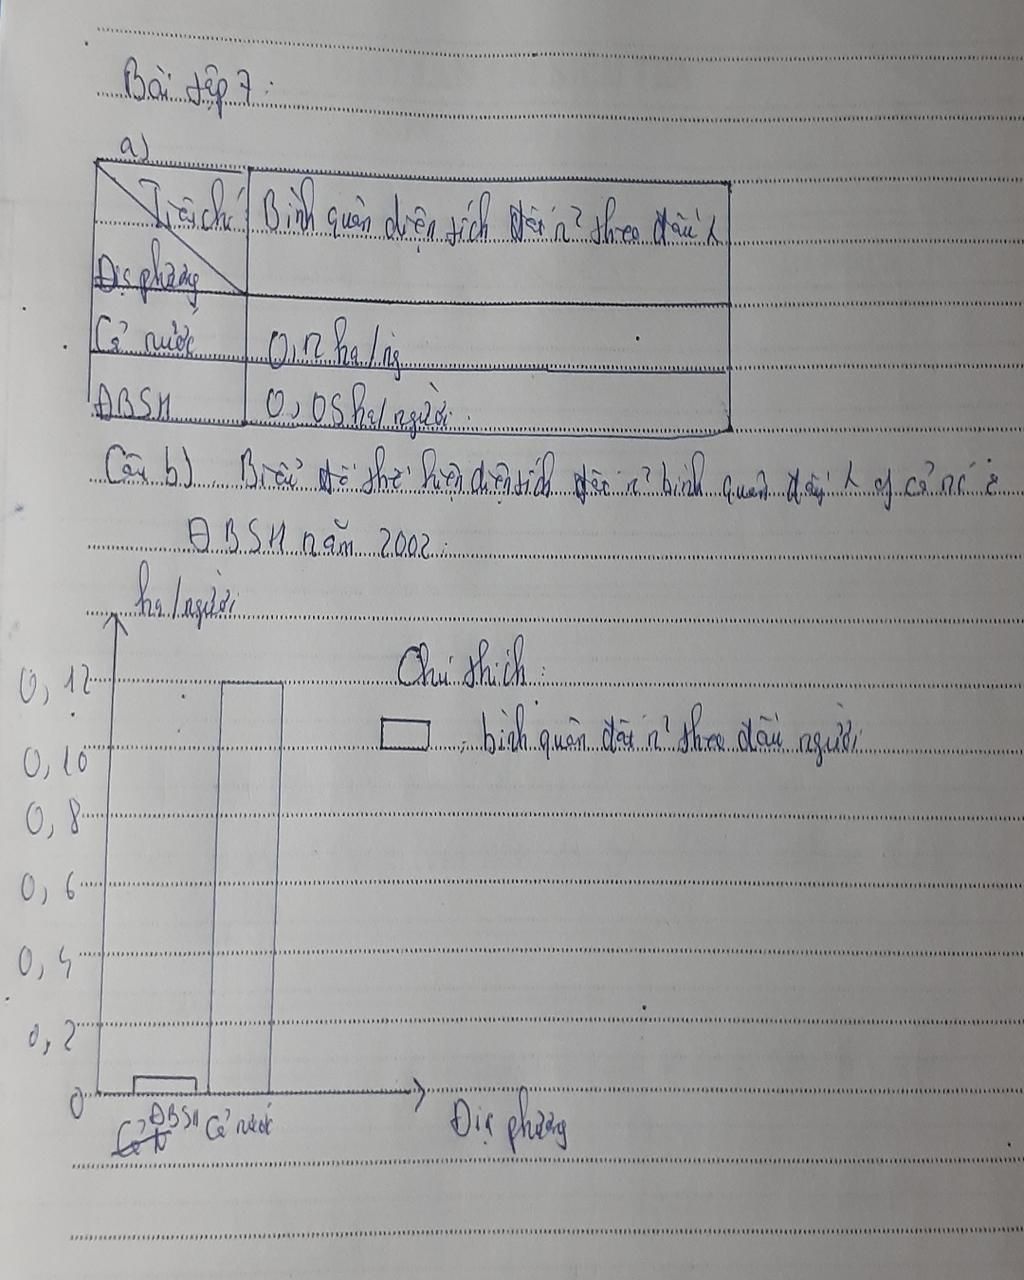 Bài tập 7:
a)
Tiêu chí
Bình quân diện tích đất n² theo đầu
Địa phương
Cả nước
0,12 ha/ng
ĐBSH
0,05 ha/người.
Câu b) Biểu đồ thể hiện diện tích đất n² bình quân đầu of cả nc
ĐBSH năm 2002:
ha/người
0,12
Chú thích:
: bình quân đất n² theo đầu người
0,10
0,8
0,6
0,4
0,2
0
ĐBSH Cả nước
Địa phương